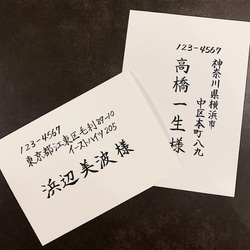 123-4567
神奈川県横浜市
中区本町八九
高橋一生様
123-4567
東京都江東区毛利89-10
イーストハイツ205
浜辺美波様